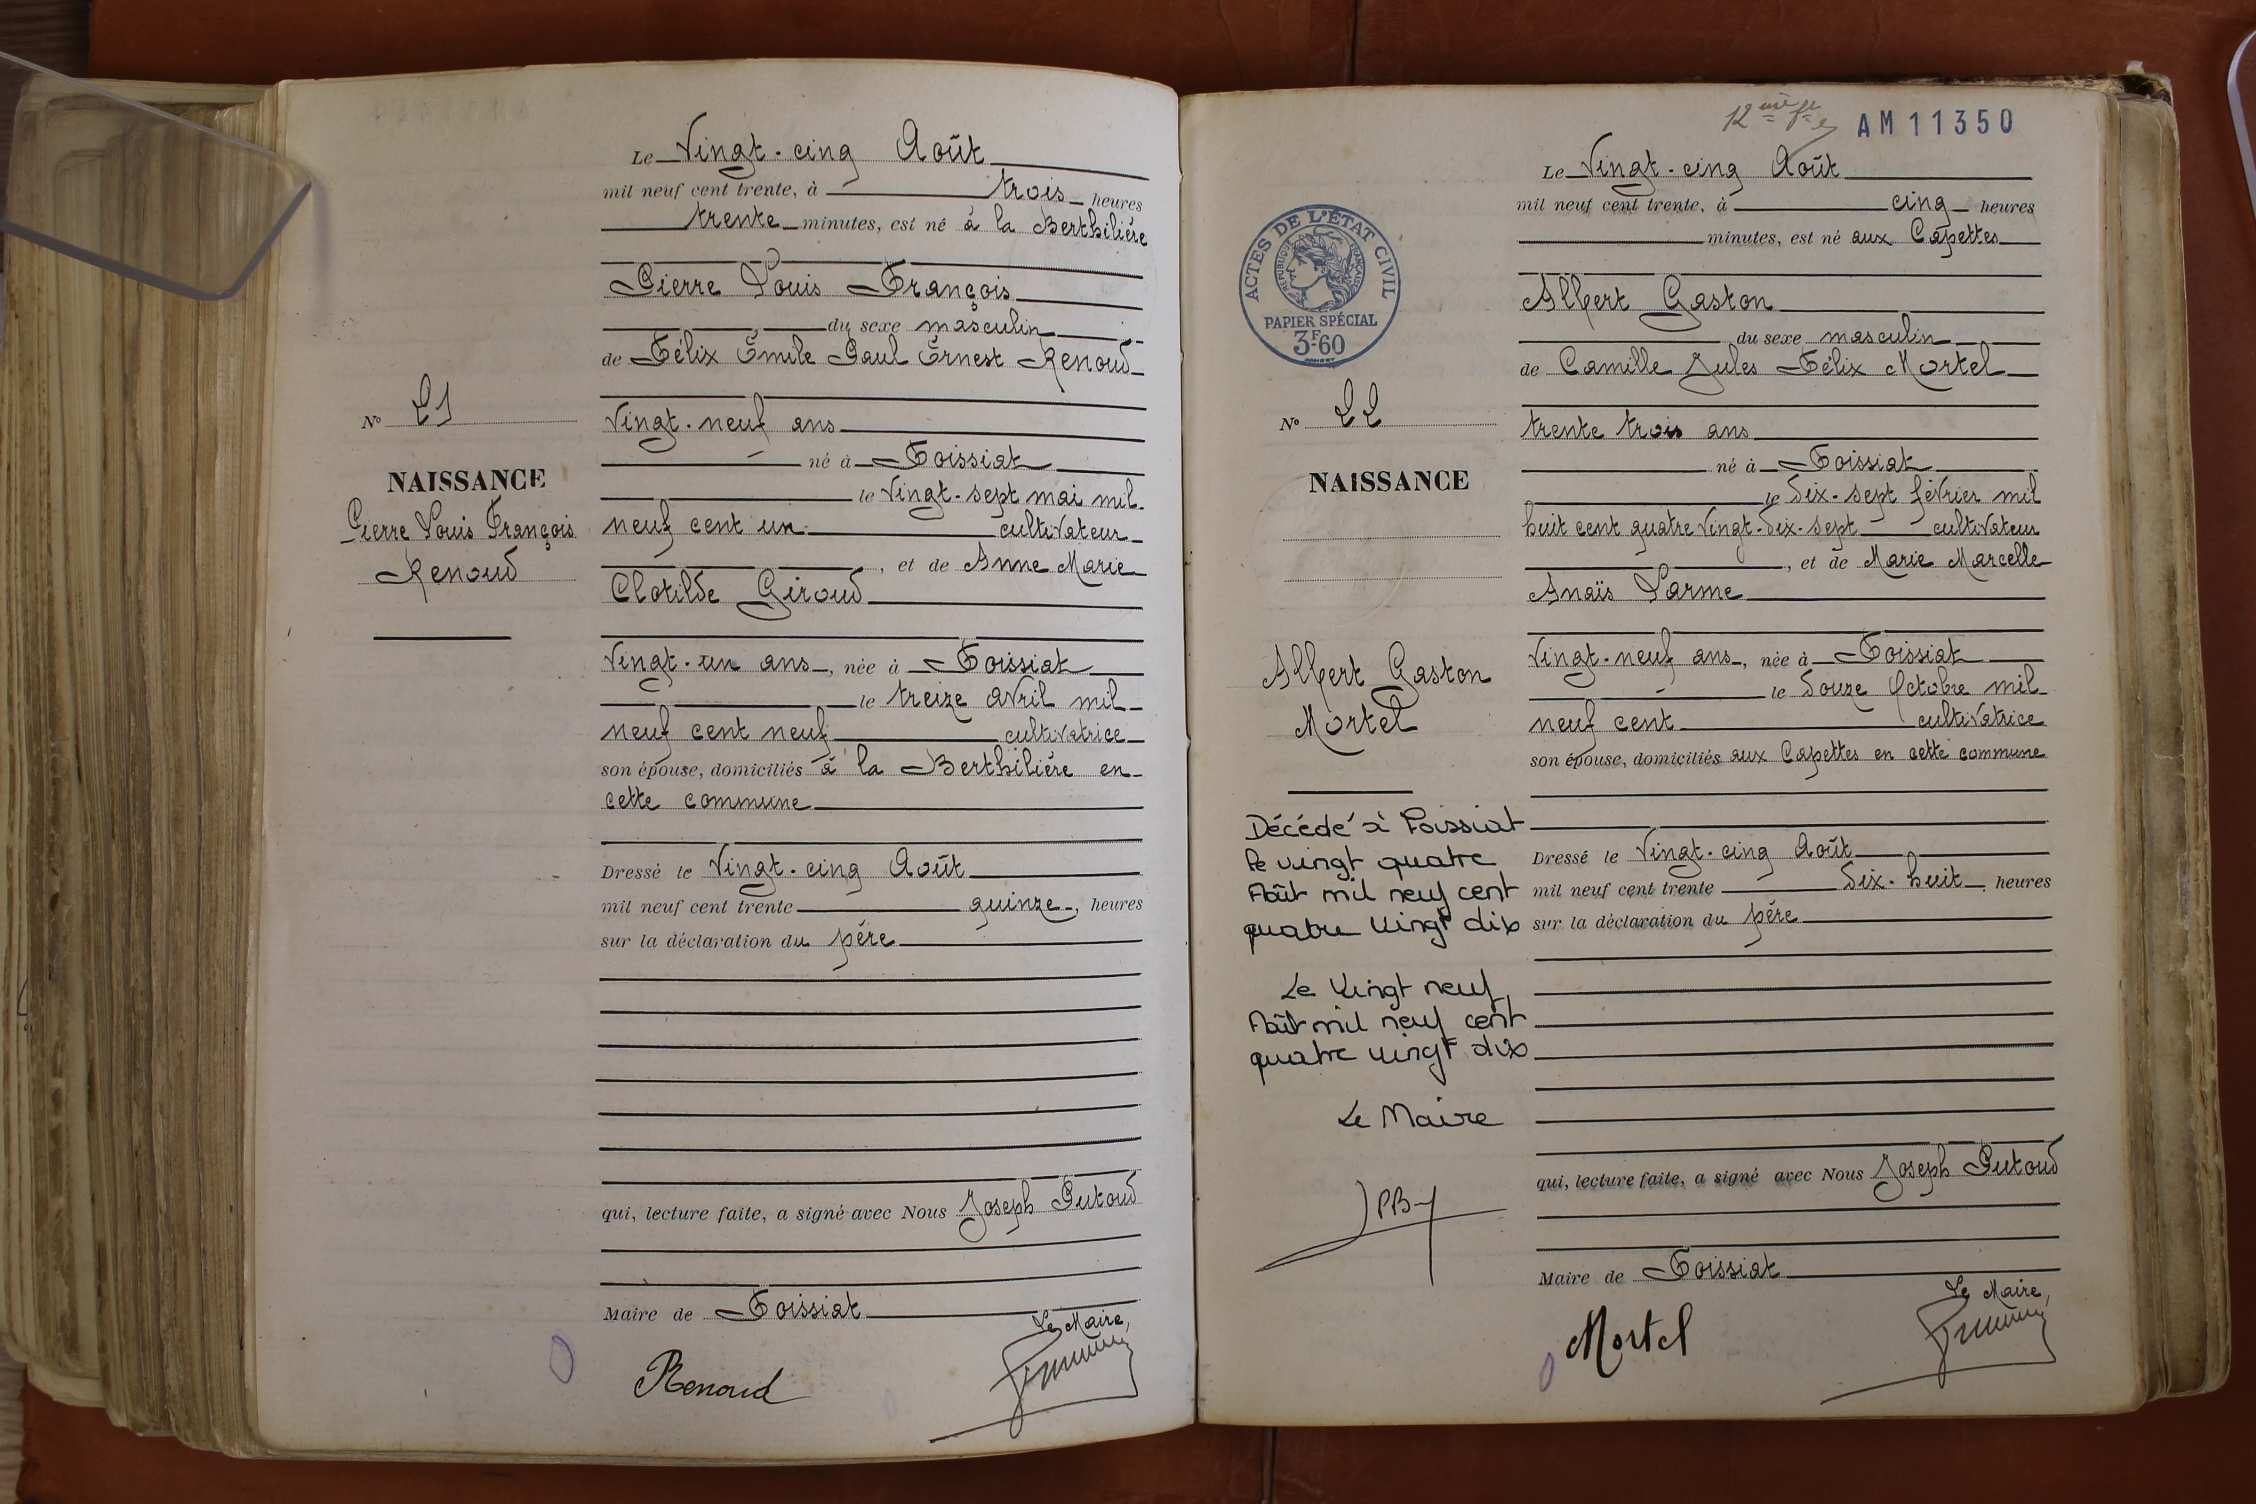 Le Vingt-cinq Août
mil neuf cent trente, à trois heures
trente minutes, est né à la Berthilière
Pierre Louis François
du sexe masculin
de Félix Émile Paul Ernest Renoud
N° 21
Vingt-neuf ans
né à Foissiat
NAISSANCE
le Vingt-sept mai mil
Pierre Louis François
neuf cent un cultivateur
Renoud
, et de Anne Marie
Clotilde Giroud
Vingt-un ans, née à Foissiat
le treize Avril mil
neuf cent neuf cultivatrice
son épouse, domiciliés à la Berthilière en
cette commune
Dressé le Vingt-cinq Août
mil neuf cent trente quinze, heures
sur la déclaration du père
qui, lecture faite, a signé avec Nous Joseph Putoud
Maire de Foissiat
Le Maire,
Renoud
12ème fle
AM11350
Le Vingt-cinq Août
mil neuf cent trente, à cinq heures
minutes, est né aux Capettes
ACTES DE L'ÉTAT CIVIL
RÉPUBLIQUE FRANÇAISE
PAPIER SPÉCIAL
3F60
Albert Gaston
du sexe masculin
de Camille Jules Félix Mortel
N° 22
trente trois ans
né à Foissiat
NAISSANCE
le dix-sept février mil
huit cent quatre Vingt-dix-sept cultivateur
, et de Marie Marcelle
Anaïs Parme
Vingt-neuf ans, née à Foissiat
Albert Gaston
le douze Octobre mil
Mortel
neuf cent cultivatrice
son épouse, domiciliés aux Capettes en cette commune
Décédé à Foissiat
le vingt quatre
Août mil neuf cent
quatre vingt dix
Le vingt neuf
Août mil neuf cent
quatre vingt dix
Le Maire
JPB
Dressé le Vingt-cinq Août
mil neuf cent trente dix-huit, heures
sur la déclaration du père
qui, lecture faite, a signé avec Nous Joseph Putoud
Maire de Foissiat
Le Maire,
Mortel